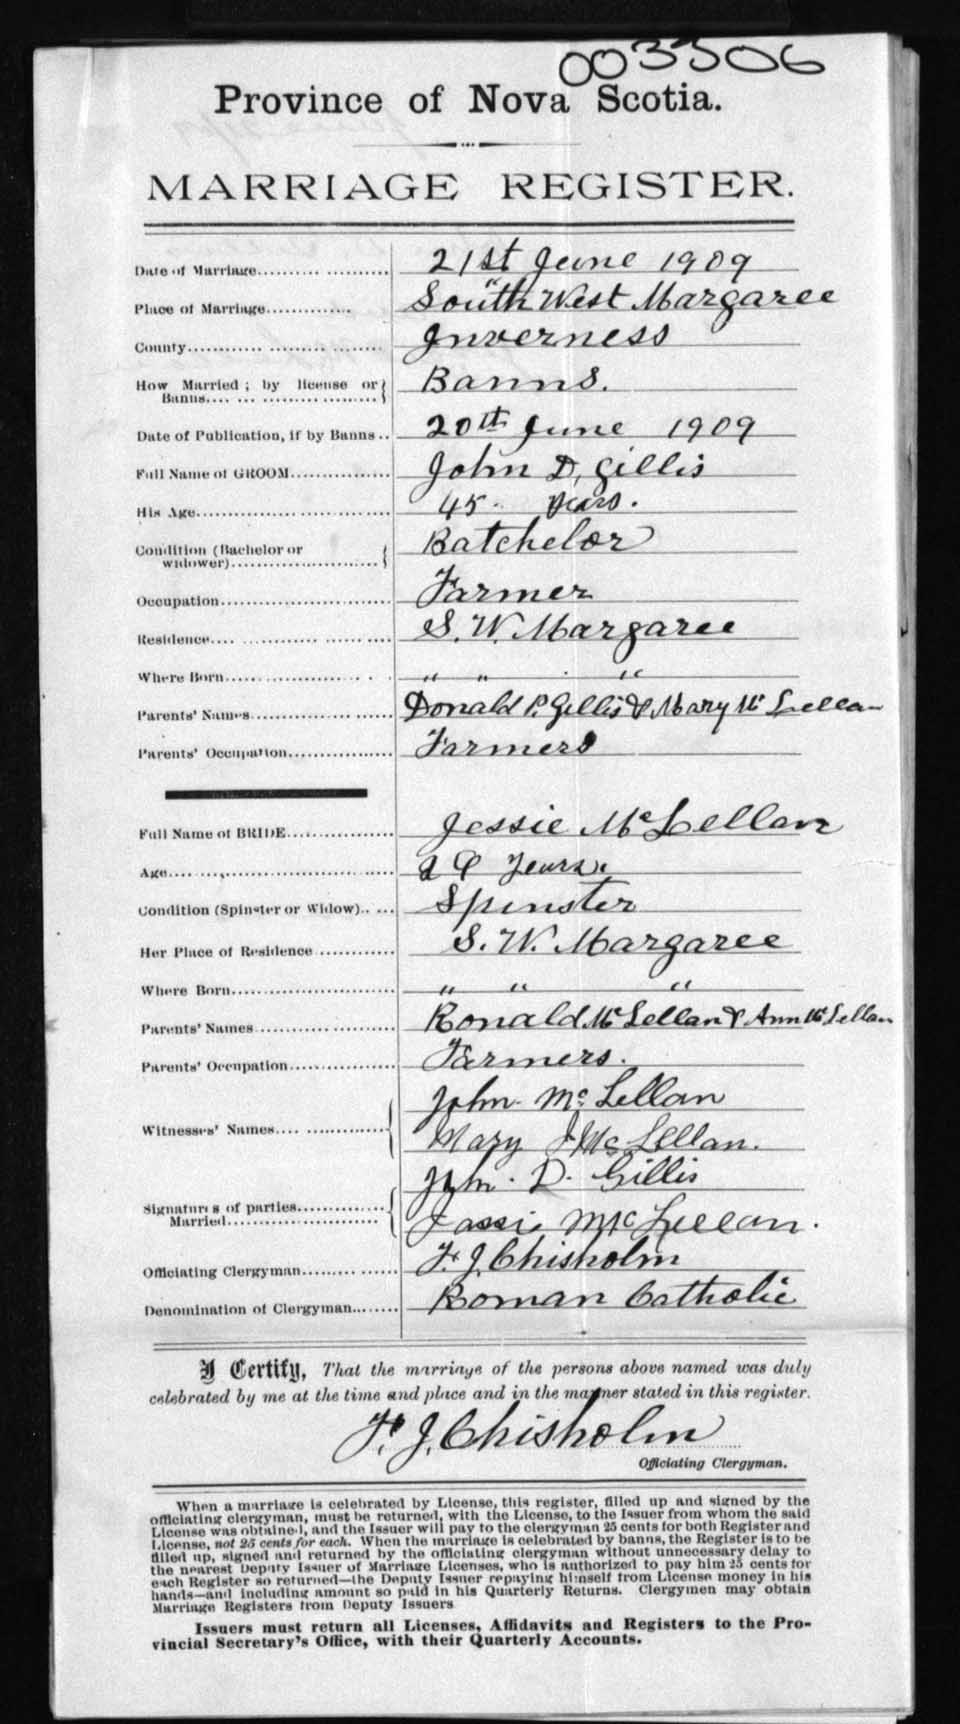 003306
Province of Nova Scotia.
MARRIAGE REGISTER.
Date of Marriage 21st June 1909
Place of Marriage South West Margaree
County Inverness
How Married ; by license or Banns Banns.
Date of Publication, if by Banns 20th June 1909
Full Name of GROOM John D. Gillis
His Age 45 years.
Condition (Bachelor or widower) Batchelor
Occupation Farmer
Residence S. W. Margaree
Where Born " " "
Parents' Names Donald P. Gillis & Mary Mc Lellan
Parents' Occupation Farmers
Full Name of BRIDE Jessie McLellan
Age Years.
Condition (Spinster or Widow) Spinster
Her Place of Residence S. W. Margaree
Where Born " " "
Parents' Names Ronald Mc Lellan & Ann Mc Lellan
Parents' Occupation Farmers.
Witnesses' Names John Mc Lellan
Mary J McLellan.
Signatures of parties Married John D. Gillis
Jassie McLellan.
Officiating Clergyman F. J. Chisholm
Denomination of Clergyman Roman Catholic
I Certify, That the marriage of the persons above named was duly
celebrated by me at the time and place and in the manner stated in this register.
F. J. Chisholm
Officiating Clergyman.
When a marriage is celebrated by License, this register, filled up and signed by the
officiating clergyman, must be returned, with the License, to the Issuer from whom the said
License was obtained, and the Issuer will pay to the clergyman 25 cents for both Register and
License, not 25 cents for each. When the marriage is celebrated by banns, the Register is to be
filled up, signed and returned by the officiating clergyman without unnecessary delay to
the nearest Deputy Issuer of Marriage Licenses, who is authorized to pay him 25 cents for
each Register so returned—the Deputy Issuer repaying himself from License money in his
hands—and including amount so paid in his Quarterly Returns. Clergymen may obtain
Marriage Registers from Deputy Issuers
Issuers must return all Licenses, Affidavits and Registers to the Pro-
vincial Secretary's Office, with their Quarterly Accounts.